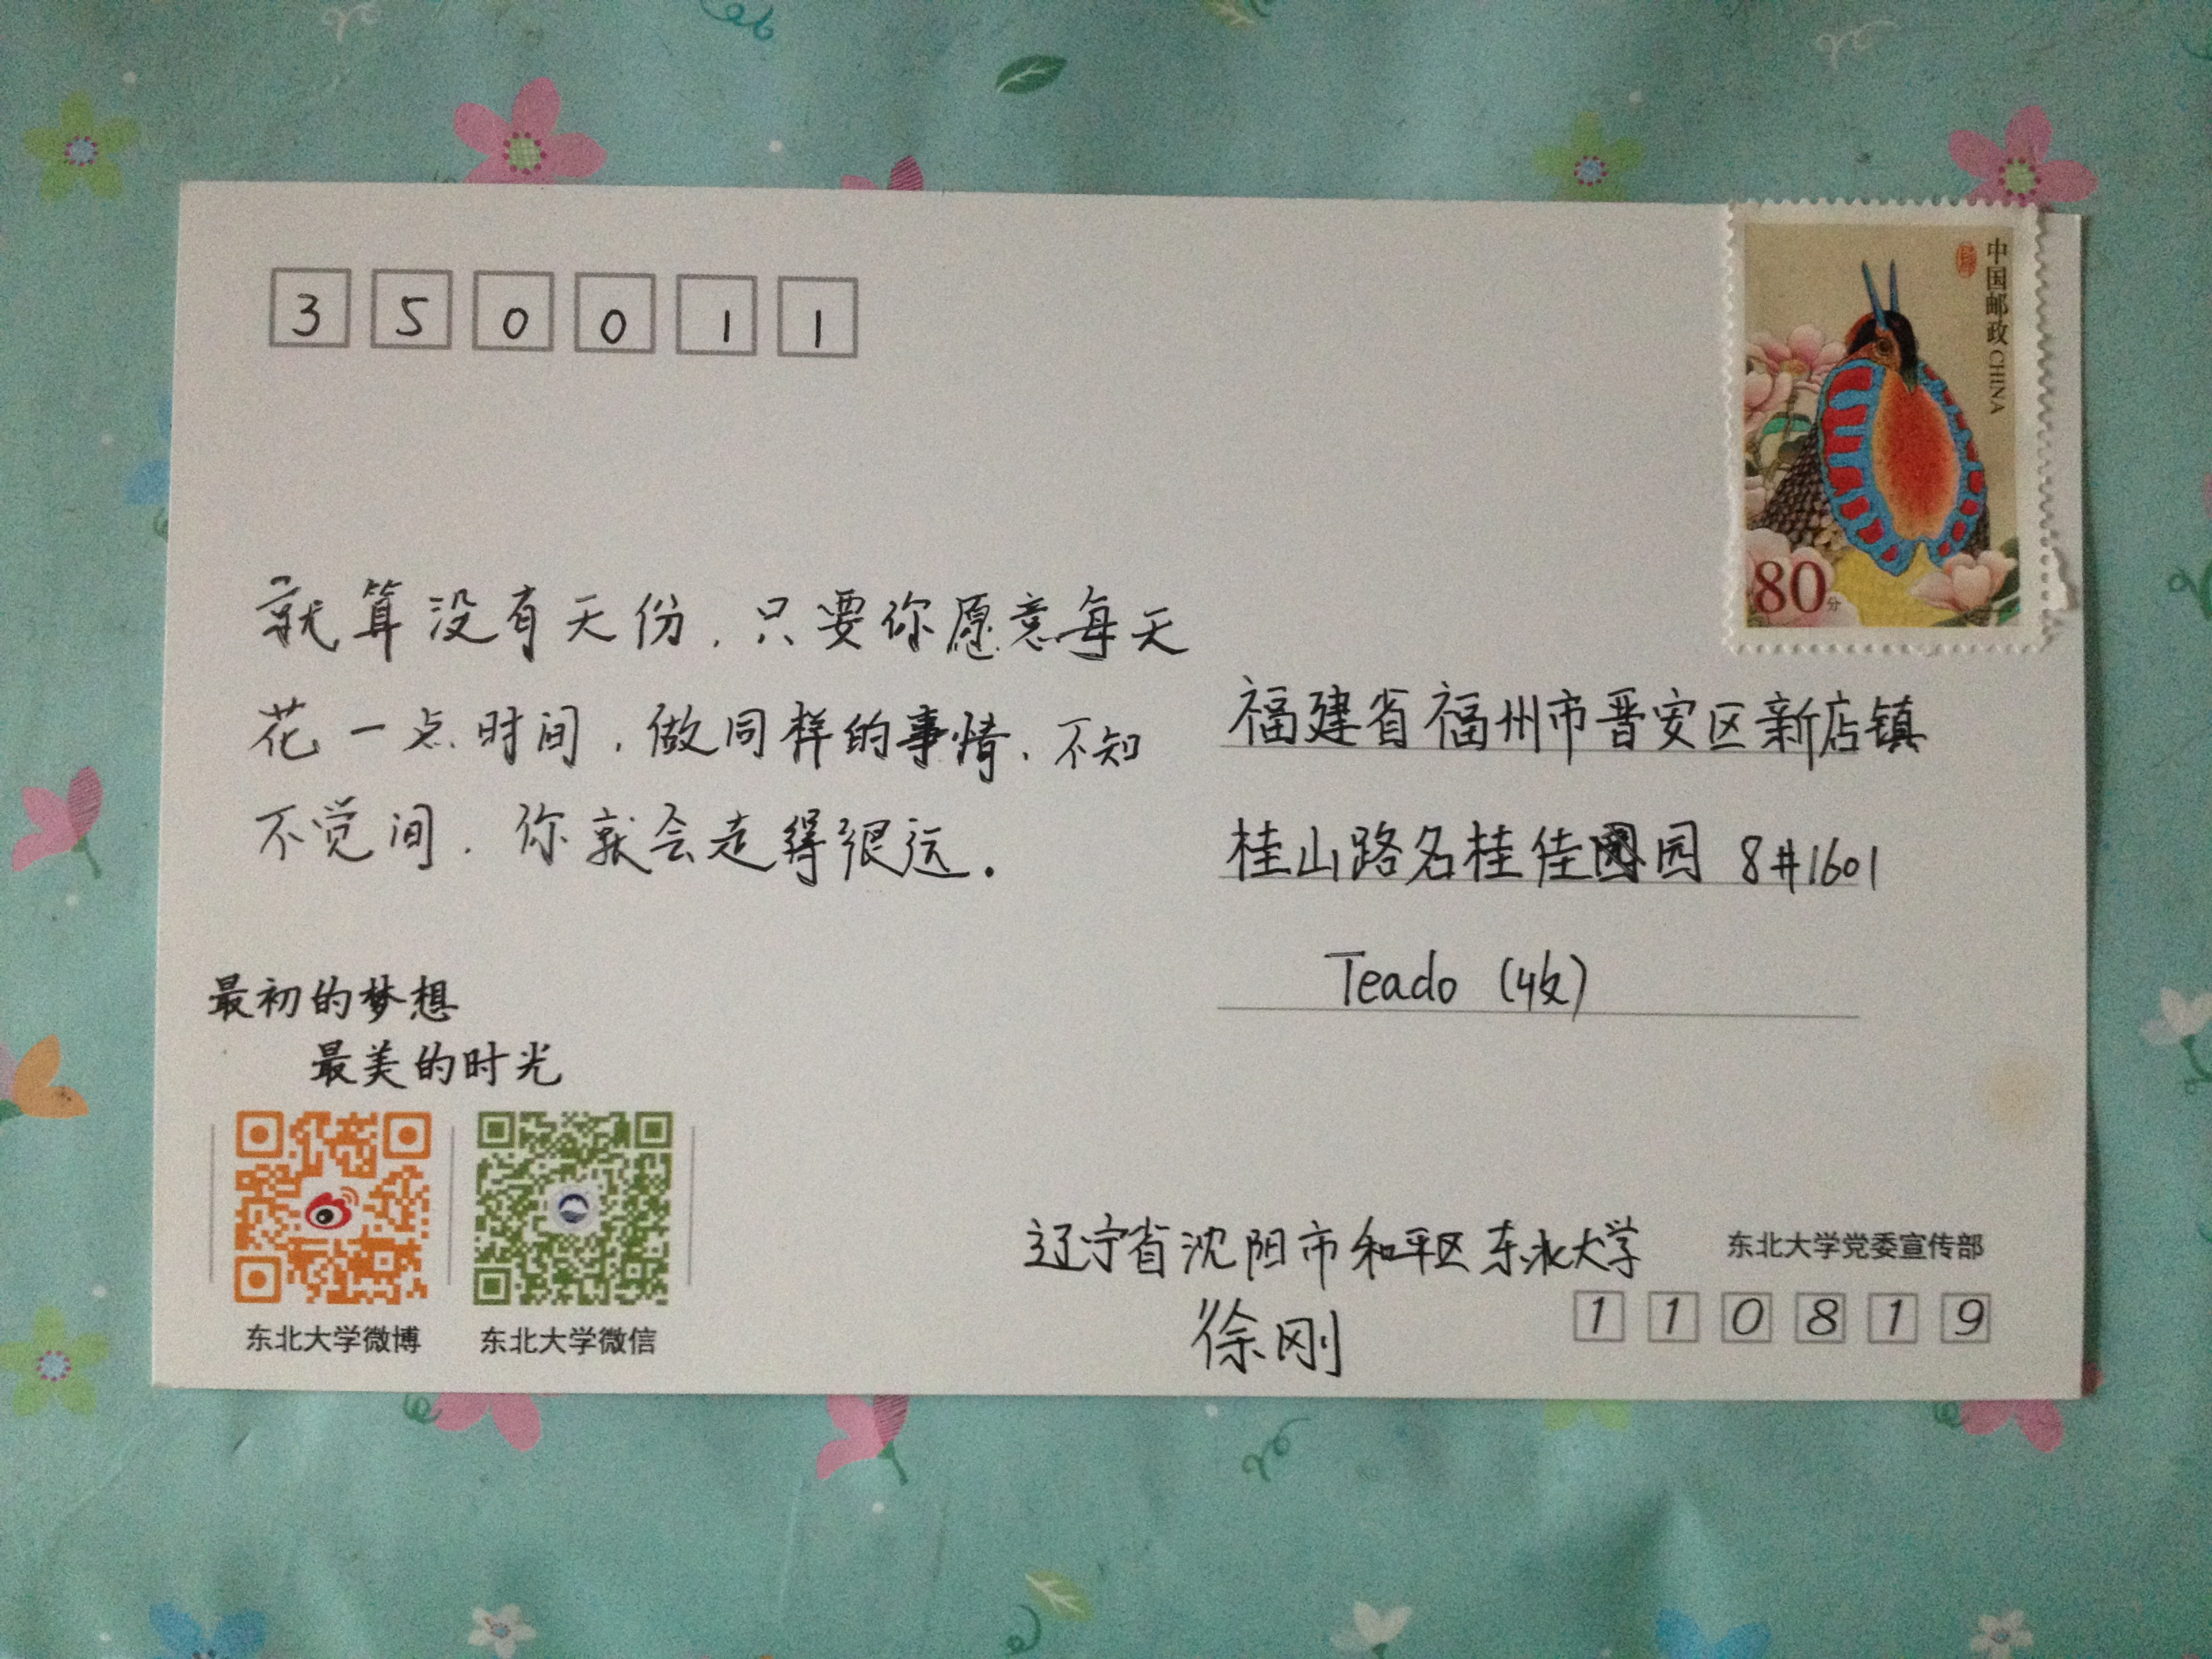 350011
中国邮政 CHINA
80分
就算没有天份，只要你愿意每天
花一点时间，做同样的事情，不知
不觉间，你就会走得很远.
福建省福州市晋安区新店镇
桂山路名桂佳园 8#1601
Teado (收)
最初的梦想
最美的时光
东北大学微博
东北大学微信
辽宁省沈阳市和平区东北大学
徐刚
东北大学党委宣传部
110819